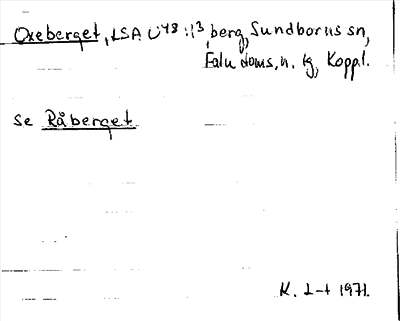 Oxeberget, LSA U48:13, berg, Sundborns sn,
Falu doms.n. tg, Koppl.
se Råberget
K. L-t 1971.